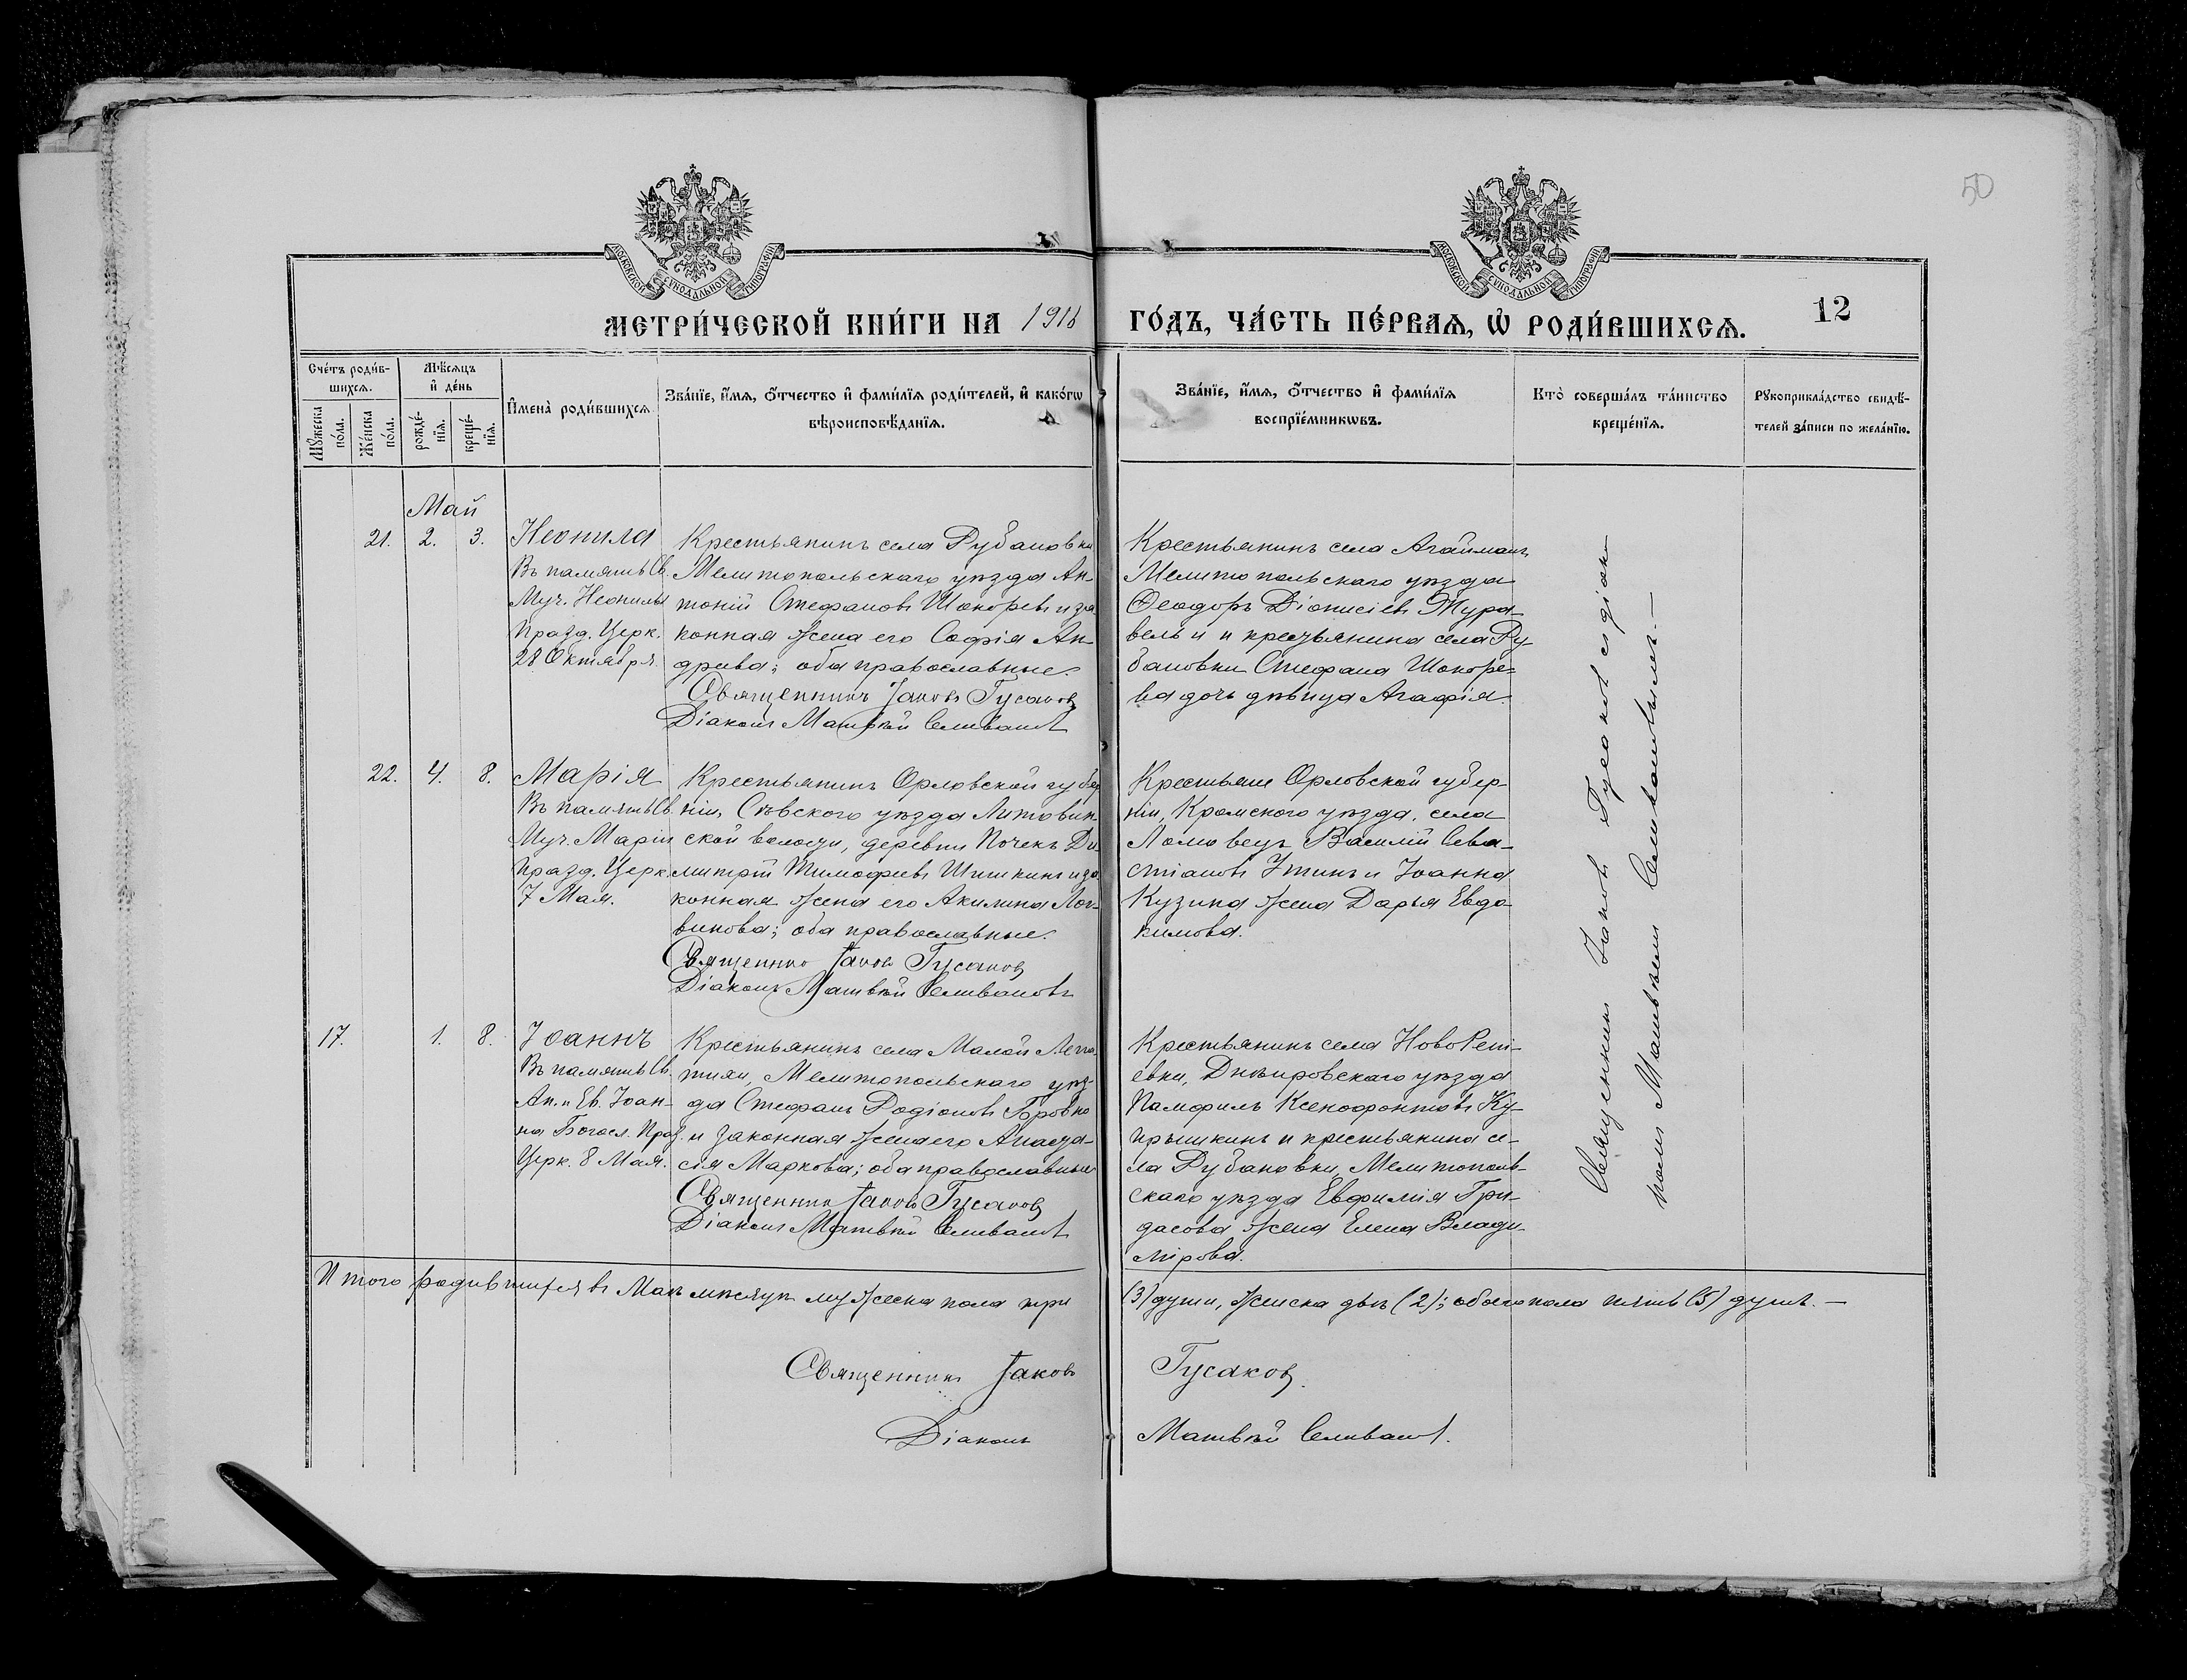 50
МОСКОВСКОЙ СѴНОДАЛЬНОЙ ТИПОГРАФІИ
МОСКОВСКОЙ СѴНОДАЛЬНОЙ ТИПОГРАФІИ
МЕТРИ́ЧЕСКОЙ КНИ́ГИ НА 1916 ГО́ДЪ, ЧА́СТЬ ПЕ́РВАѦ, Ѡ҆ РОДИ́ВШИХСѦ. 12
Сче́тъ роди́в-
шихсѧ.
Мꙋ́жеска
по́ла.
Же́нска
по́ла.
Мѣ́сѧцъ
и҆ де́нь
рожде́-
нїѧ.
креще́-
нїѧ.
И҆мена̀ роди́вшихсѧ
Зва́нїе, и҆́мѧ, ѻ҆́тчество и҆ фами́лїѧ роди́телей, и҆ како́гѡ
вѣроисповѣ́данїѧ.
Зва́нїе, и҆́мѧ, ѻ҆́тчество и҆ фами́лїѧ
воспрїе́мникѡвъ.
Кто̀ соверша́лъ та́инство
креще́нїѧ.
Рꙋкоприкла́дство свидѣ́-
телей за́писи по жела́нїю.
Май
21. 2. 3.
Неонила
Въ память Св.
Муч. Неонилы
Празд. Церк.
28 Октября.
Крестьянинъ села Рубановки
Мелитопольскаго уѣзда Ан-
тоній Стефановъ Шокоревъ и за-
конная жена его Софія Ан-
древа; оба православные.
Священникъ Іаковъ Гусаковъ
Діаконъ Матвѣй Селивановъ
Крестьянинъ села Агайманъ
Мелитопольскаго уѣзда
Ѳеодоръ Діонисіевъ Жура-
вель и и крестьянина села Ру-
бановки Стефана Шокоре-
ва дочь дѣвица Агафія.
22. 4. 8.
Марія
Въ память Св.
Муч. Маріи
Празд. Церк.
7 Мая.
Крестьянинъ Орловской губер-
ніи, Сѣвского уѣзда Литовин-
ской волости, деревни Почекъ Ди-
митрій Тимофеевъ Шишкинъ и за-
конная жена его Акилина Лог-
винова; оба православные.
Священник Іаковъ Гусаковъ
Діаконъ Матвѣй Селивановъ
Крестьяне Орловской губер-
ніи, Кромского уѣзда, села
Ломовецъ Василій Сева-
стіановъ и Іоанна
Кузина жена Дарья Евдо-
кимова.
17. 1. 8.
Іоаннъ
Въ память Св.
Ап. и Ев. Іоан-
на Богосл. Празд.
Церк. 8 Мая.
Крестьянинъ села Малой Лепа-
тихи, Мелитопольскаго уѣз-
да Стефанъ Родіоновъ Бровко
и законная жена его Анаста-
сія Маркова; оба православные
Священник Іаковъ Гусаковъ
Діаконъ Матвѣй Селивановъ
Крестьянинъ села НовоРепі-
евки, Днѣпровскаго уѣзда
Памфилъ Ксенофонтовъ Ку-
прышкинъ и крестьянина се-
ла Рубановки, Мелитополь-
скаго уѣзда Евфимія Гри-
дасова жена Елена Влади-
мірова.
Священникъ Іаковъ Гусаковъ съ діако-
номъ Матвѣемъ Селивановымъ. —
Итого родившихся въ Маѣ мѣсяцѣ мужеска пола три (3) души, женска двѣ (2); обоего пола пять (5) душъ. —
Священникъ Іаковъ Гусаковъ.
Діаконъ Матвѣй Селивановъ.